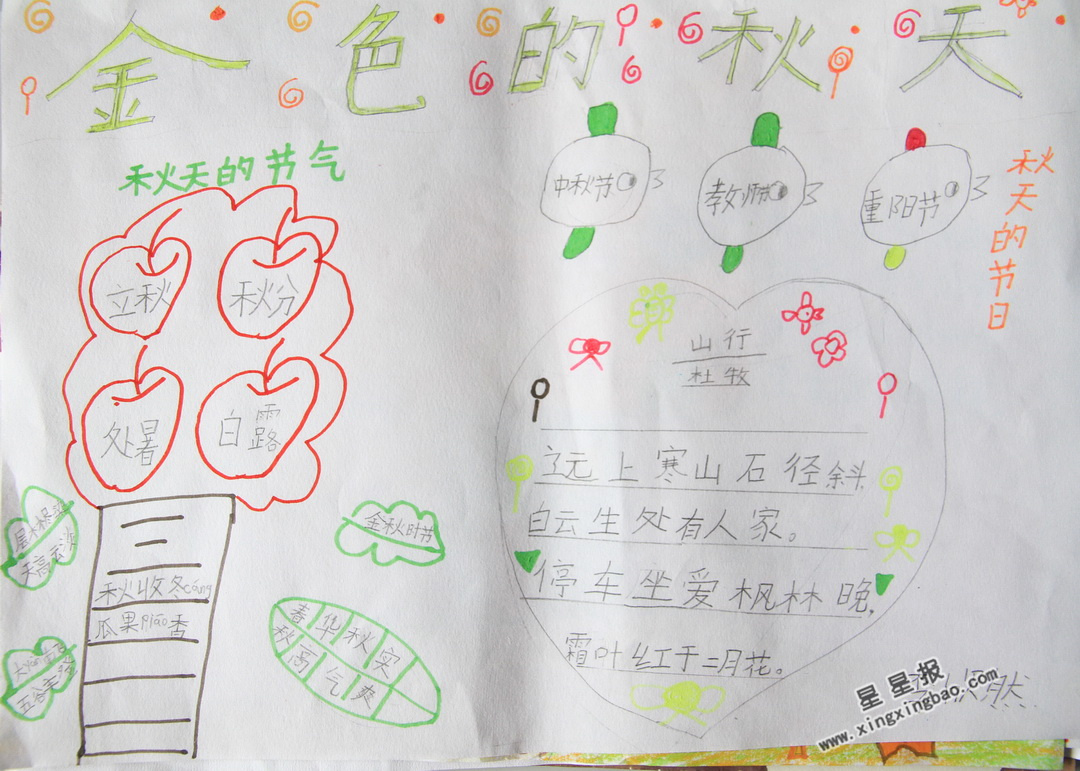 金色的秋天
秋天的节气
立秋
秋分
处暑
白露
秋收冬cáng
瓜果piāo香
金秋时节
春华秋实
秋高气爽
中秋节
教师节
重阳节
秋天的节日
山行
杜牧
远上寒山石径斜
白云生处有人家。
停车坐爱枫林晚,
霜叶红于二月花。
星星报
www.xingxingbao.com